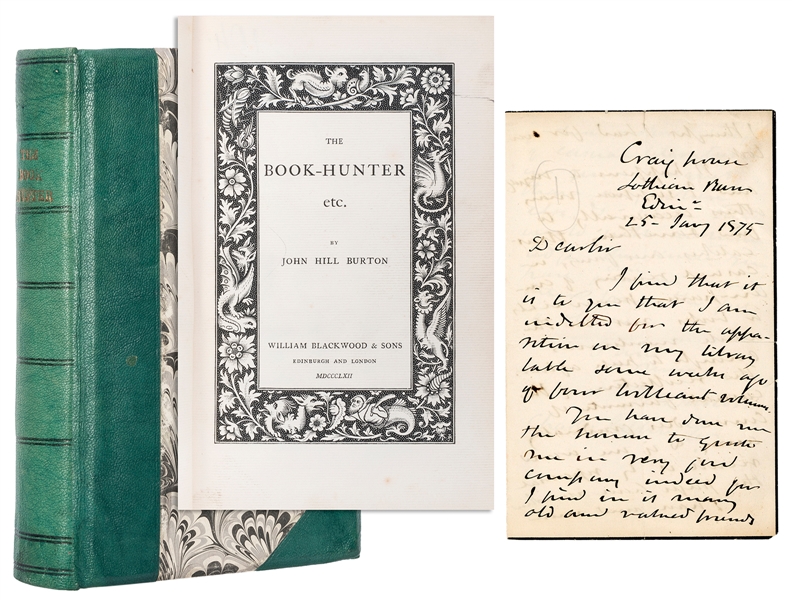 THE
BOOK
HUNTER
THE
BOOK-HUNTER
etc.
BY
JOHN HILL BURTON
WILLIAM BLACKWOOD & SONS
EDINBURGH AND LONDON
MDCCCLXII
Craig house
Lothian Burn
Edinr
25 Jany 1875
Dear Sir
I find that it
is to you that I am
indebted for the appa-
rition on my library
table some weeks ago
of four brilliant volumes.
You have done me
the honour to quote
me in very good
company indeed for
I find in it many
old and valued friends